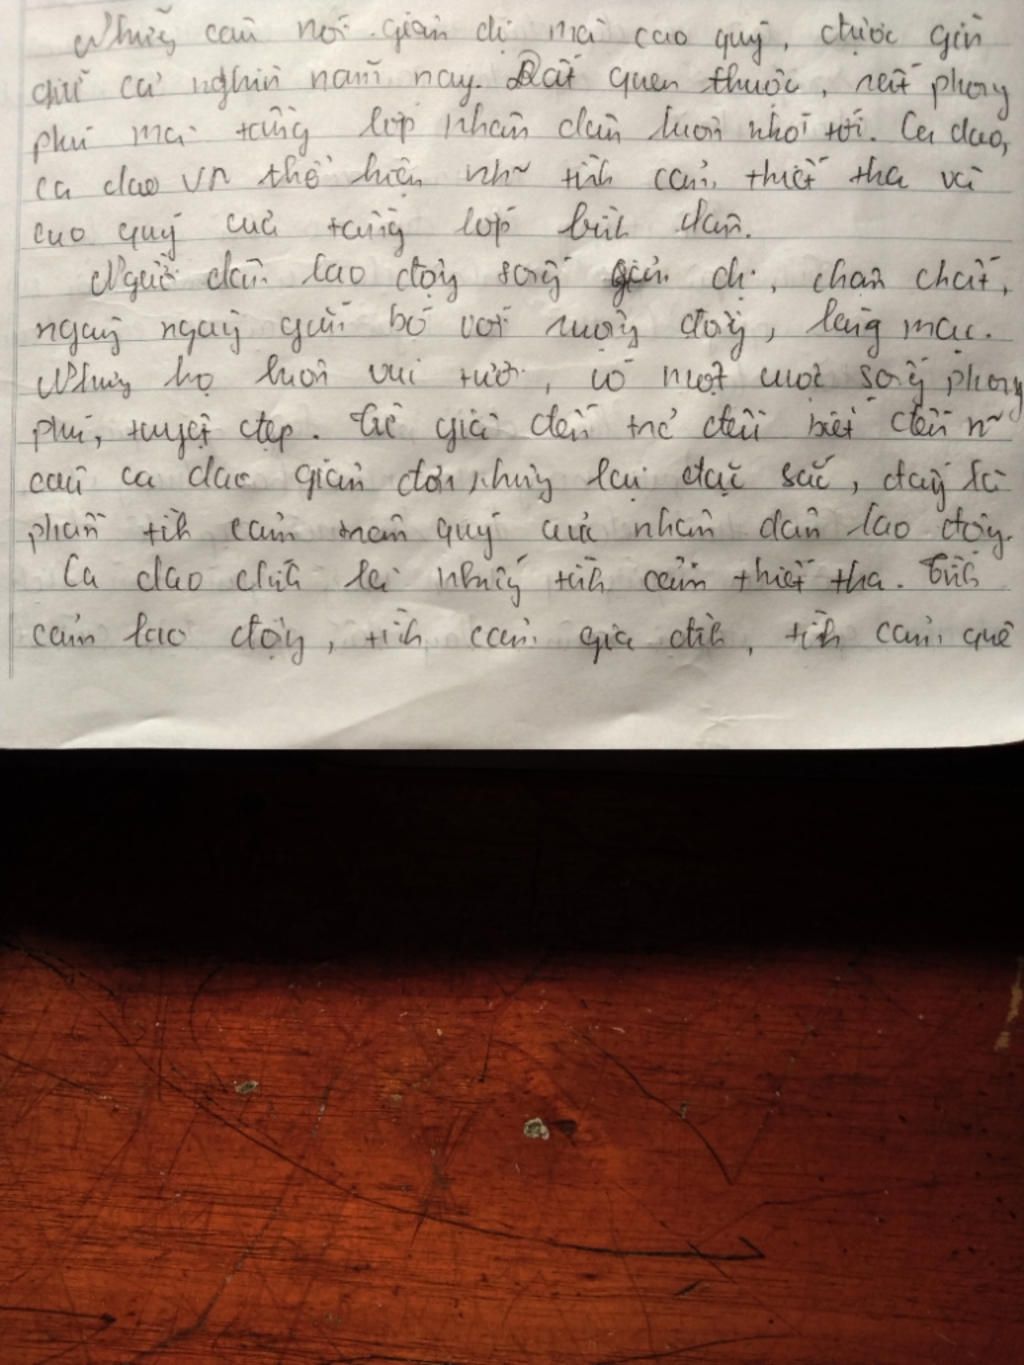 Những câu nói giản dị mà cao quý, được gìn
giữ cả nghìn năm nay. Rất quen thuộc, rất phong
phú mà tầng lớp nhân dân luôn nhớ tới. Ca dao,
ca dao VN thể hiện nh~ tình cảm thiết tha và
cao quý của tầng lớp bình dân.
Người dân lao động sống giản dị, chân chất,
ngày ngày gắn bó với ruộng đồng, làng mạc.
Nhưng họ luôn vui tươi, có một cuộc sống phong
phú, tuyệt đẹp. Từ già đến trẻ đều biết đến n~
câu ca dao giản đơn nhưng lại đặc sắc, đấy là
phần tình cảm trân quý của nhân dân lao động.
Ca dao chính là những tình cảm thiết tha. Tình
cảm lao động, tình cảm gia đình, tình cảm quê